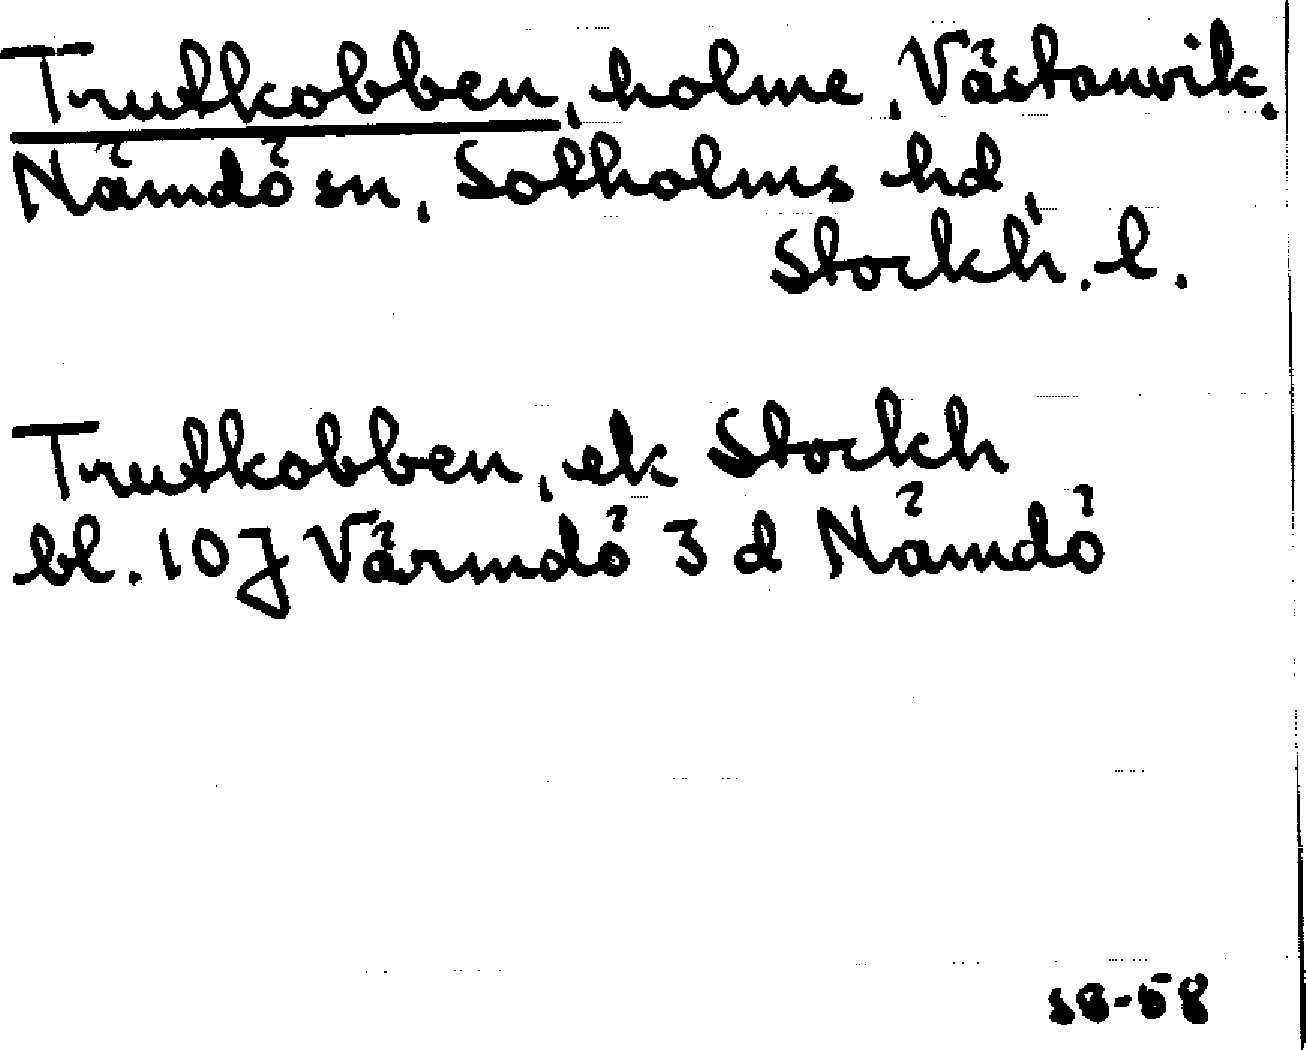 Trutkobben, holme, Västanvik,
Nämdö sn, Sotholms hd,
Stockh. l.
Trutkobben, ek Stockh
bl. 10J Värmdö 3 d Nämdö
SB-58